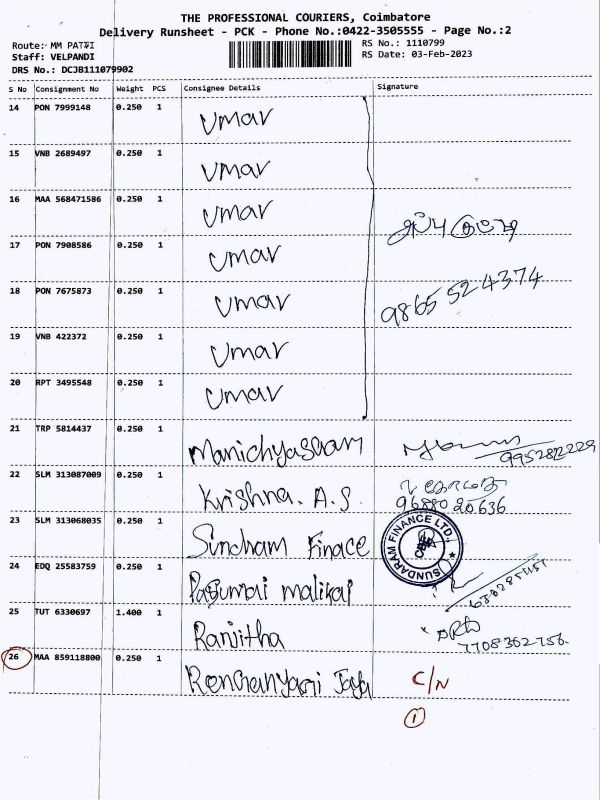 THE PROFESSIONAL COURIERS, Coimbatore
Delivery Runsheet - PCK - Phone No.:0422-3505555 - Page No.:2
Route: MM PATTI
RS No.: 1110799
Staff: VELPANDI
RS Date: 03-Feb-2023
DRS No.: DCJB111079902
S No Consignment No Weight PCS Consignee Details Signature
14 PON 7999148 0.250 1 Umar
15 VNB 2689497 0.250 1 Umar
16 MAA 568471586 0.250 1 Umar
17 PON 7908586 0.250 1 Umar
18 PON 7675873 0.250 1 Umar
9865524374
19 VNB 422372 0.250 1 Umar
20 RPT 3495548 0.250 1 Umar
21 TRP 5814437 0.250 1
22 SLM 313087009 0.250 1 Krishna. A.S.
கோமதி
9688020636
23 SLM 313068035 0.250 1 Sundham Finace
SUNDARAM FINANCE LTD.
CBE
24 EDQ 25583759 0.250 1 Pasumai malikai
25 TUT 6330697 1.400 1 Ranjitha
7708362756
26 MAA 859118800 0.250 1 Jaya C/N
1